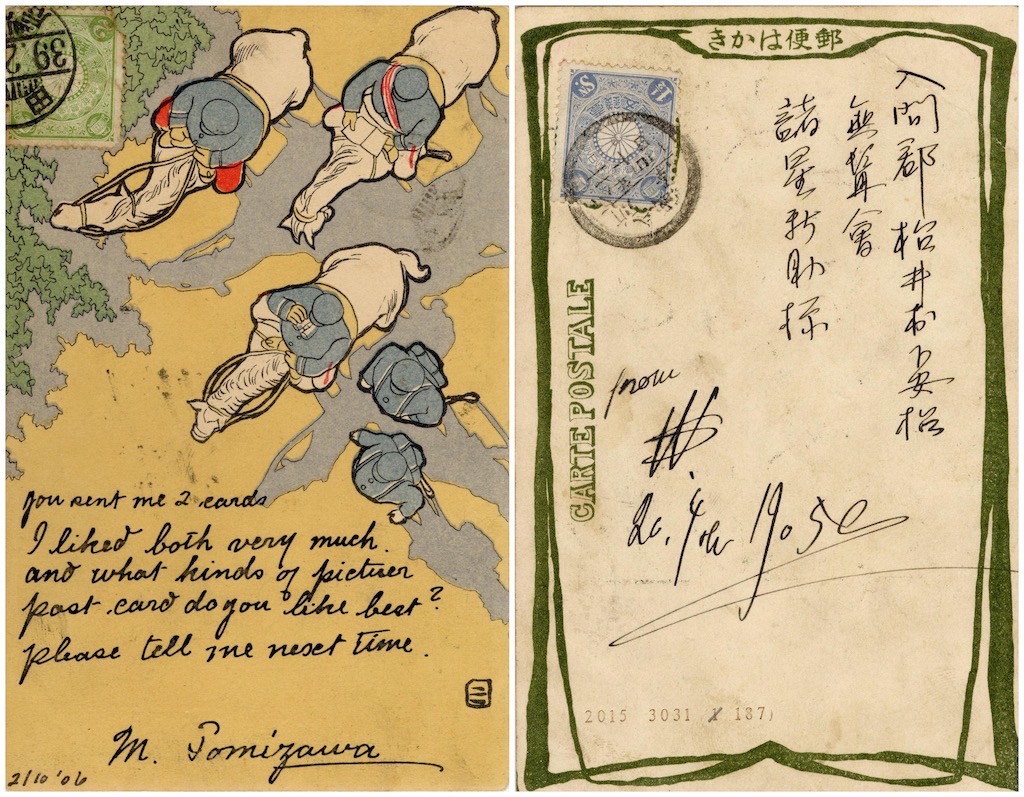 39.2
you sent me 2 cards
I liked both very much.
and what kinds of picture
post card do you like best?
please tell me next time.
三
M. Tomizawa
2/10 '06
きかは便郵
1½
入間郡 松井村下安松
無聲會
諸星新助様
CARTE POSTALE
from
1905
2015 3031 187)